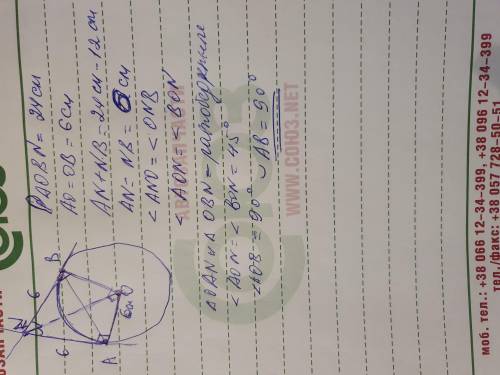 PAOBN = 24 см
AO = OB = 6 см
AN + NB = 24 см - 12 см
AN = NB = 6 см
<ANO = <ONB
<AON = <BON
Δ OAN и Δ OBN = равнобедренные
<AON = <BON = 45°
<AOB = 90° ◡ AB = 90°
N
6
B
6
6 см
O
A
СОЮЗ
WWW.СОЮЗ.NET
моб. тел.: +38 066 12-34-399, +38 096 12-34-399
тел/факс: +38 057 728-50-51